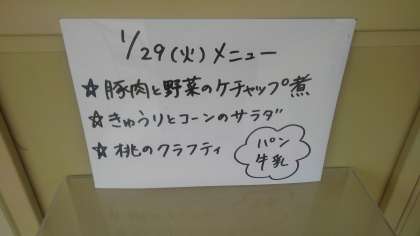 1/29(火)メニュー
☆豚肉と野菜のケチャップ煮
☆きゅうりとコーンのサラダ
☆桃のクラフティ
パン
牛乳